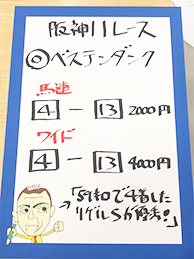 阪神11レース
◎ベステンダンク
馬連
4 - 13 2000円
ワイド
4 - 13 4000円
→「59キロで4着した
リゲルSが優秀!」